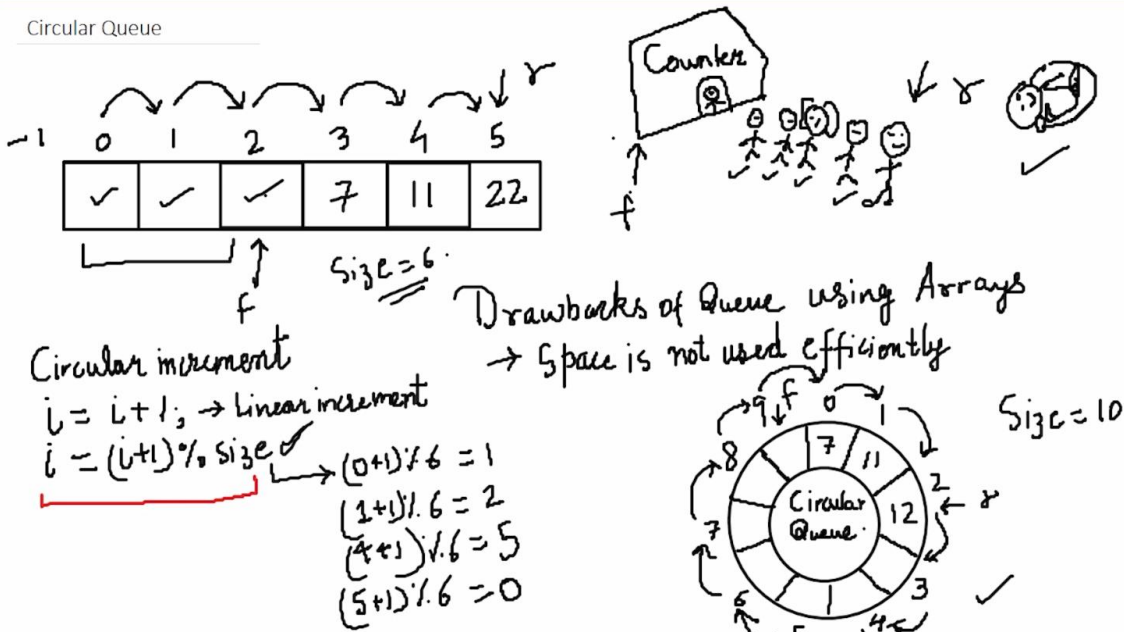 Circular Queue
r
-1 0 1 2 3 4 5
7 11 22
f
Size = 6.
Counter
r
f
Drawbacks of Queue using Arrays
→ Space is not used efficiently
Circular increment
i = i+1; → Linear increment
i = (i+1) % size
(0+1)%6 = 1
(1+1)%6 = 2
(4+1)%6 = 5
(5+1)%6 = 0
Size = 10
9 f 0 1
8 7 11 2
Circular
Queue.
12 r
7 3
6 5 4